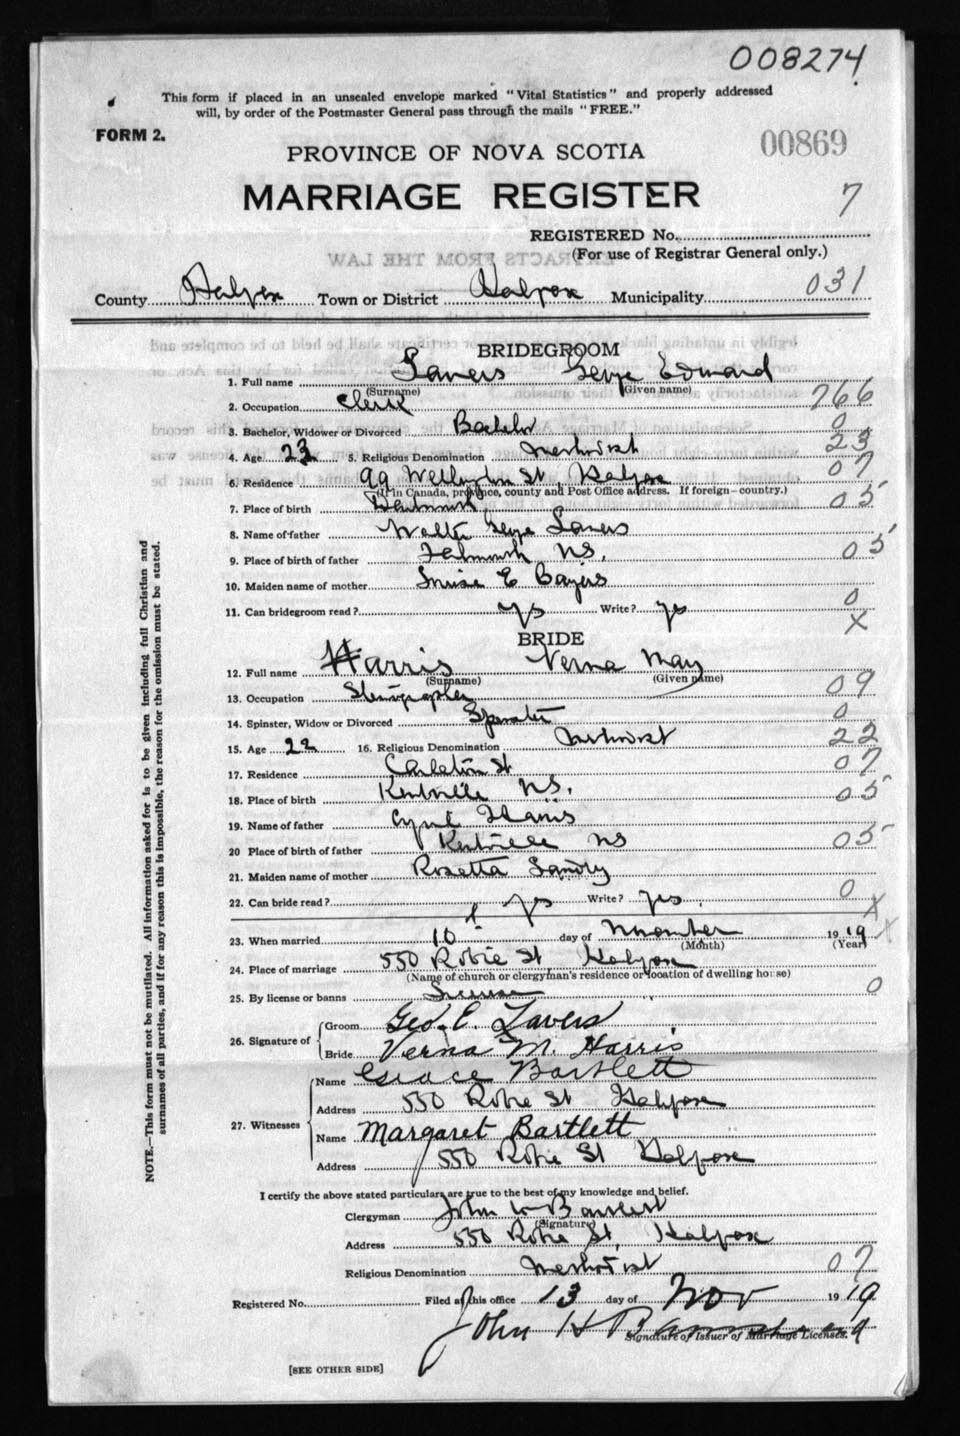 008274
This form if placed in an unsealed envelope marked "Vital Statistics" and properly addressed
will, by order of the Postmaster General pass through the mails "FREE."
FORM 2.
00869
PROVINCE OF NOVA SCOTIA
MARRIAGE REGISTER
7
REGISTERED No.
(For use of Registrar General only.)
County Halifax Town or District Halifax Municipality 031
BRIDEGROOM
1. Full name Lavers George Edward
(Surname) (Given name)
2. Occupation Clerk 766
3. Bachelor, Widower or Divorced Bachelor 0
4. Age 23 5. Religious Denomination Methodist 23
6. Residence 99 Wellington St, Halifax 07
(If in Canada, province, county and Post Office address. If foreign—country.)
7. Place of birth Dartmouth 05
8. Name of father Walter George Lavers
9. Place of birth of father Falmouth N.S. 05
10. Maiden name of mother E
11. Can bridegroom read? yes Write? yes 0
X
BRIDE
12. Full name Harris Verna May
(Surname) (Given name)
13. Occupation Stenographer 09
14. Spinster, Widow or Divorced Spinster 0
15. Age 22 16. Religious Denomination Methodist 22
17. Residence Carleton St 07
18. Place of birth Kentville N.S. 05
19. Name of father Cyrus Harris
20 Place of birth of father Kentville NS 05
21. Maiden name of mother Rosetta
22. Can bride read? yes Write? yes. 0
X
23. When married 10 day of November 1919 X
(Month) (Year)
24. Place of marriage 550 Robie St Halifax
(Name of church or clergyman's residence or location of dwelling house)
25. By license or banns License 0
26. Signature of Groom Geo. E. Lavers
Bride Verna M. Harris
27. Witnesses Name Grace Bartlett
Address 550 Robie St Halifax
Name Margaret Bartlett
Address 550 Robie St Halifax
I certify the above stated particulars are true to the best of my knowledge and belief.
Clergyman John W Bartlett
(Signature)
Address 550 Robie St, Halifax
Religious Denomination Methodist 07
Registered No. Filed at this office 13 day of Nov 1919
John H
Signature of Issuer of Marriage Licenses.
[SEE OTHER SIDE]
NOTE.—This form must not be mutilated. All information asked for is to be given including full Christian and
surnames of all parties, and if for any reason this is impossible, the reason for the omission must be stated.